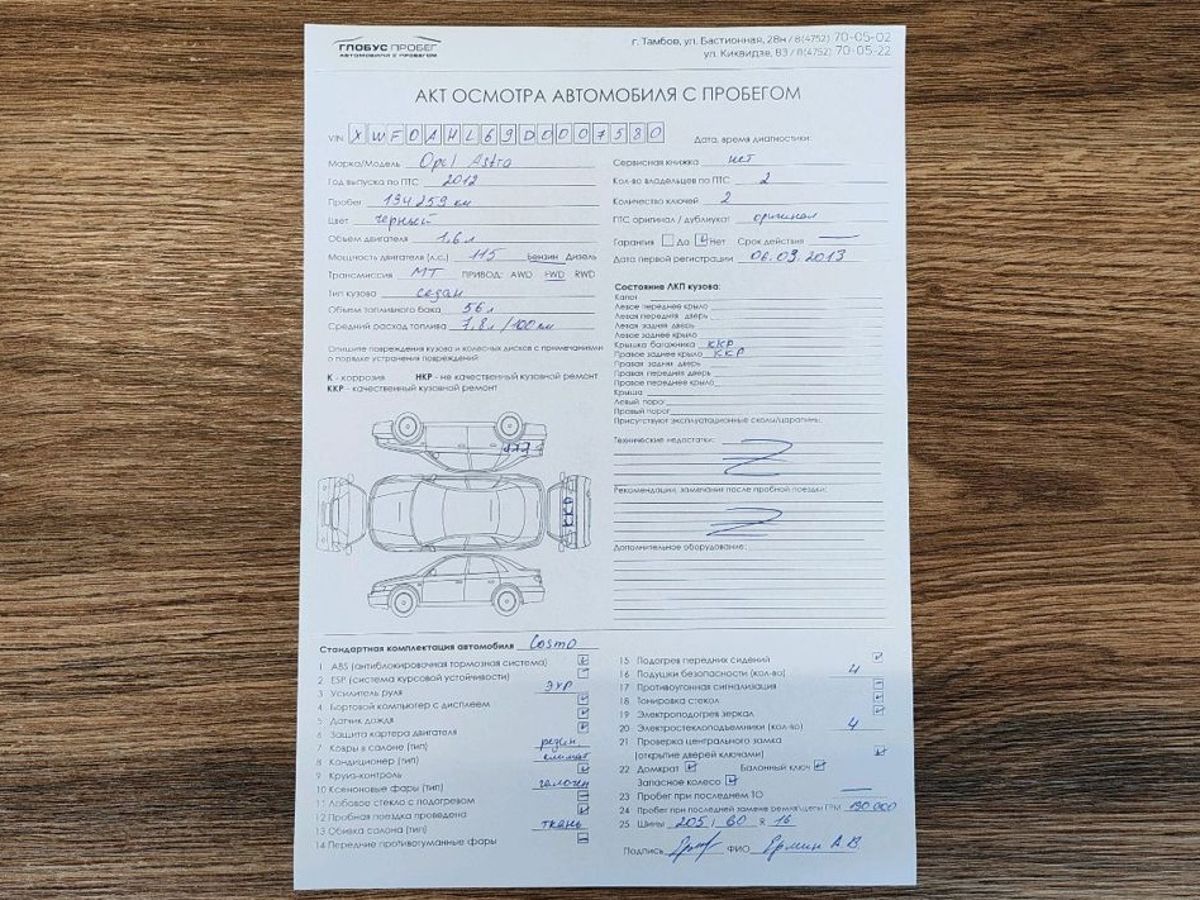 ГЛОБУС ПРОБЕГ
АВТОМОБИЛИ С ПРОБЕГОМ
г. Тамбов, ул. Бастионная, 28н / 8(4752) 70-05-02
ул. Киквидзе, 83 / 8(4752) 70-05-22
АКТ ОСМОТРА АВТОМОБИЛЯ С ПРОБЕГОМ
VIN XWF0AHL69D0007580
Дата, время диагностики:
Марка/Модель Opel Astra
Год выпуска по ПТС 2012
Пробег 194 259 км
Цвет черный
Объем двигателя 1,6 л
Мощность двигателя (л.с.) 115 Бензин Дизель
Трансмиссия МТ ПРИВОД: AWD FWD RWD
Тип кузова седан
Объем топливного бака 56 л
Средний расход топлива 7,8 л /100 км
Опишите повреждения кузова и колесных дисков с примечаниями
о порядке устранения повреждений
К - коррозия НКР - не качественный кузовной ремонт
ККР - качественный кузовной ремонт
ККР
Сервисная книжка нет
Кол-во владельцев по ПТС 2
Количество ключей 2
ПТС оригинал / дубликат оригинал
Гарантия Да Нет Срок действия
Дата первой регистрации 06.03.2013
Состояние ЛКП кузова:
Капот
Левое переднее крыло
Левая передняя дверь
Левая задняя дверь
Левое заднее крыло
Крышка багажника ККР
Правое заднее крыло ККР
Правая задняя дверь
Правая передняя дверь
Правое переднее крыло
Крыша
Левый порог
Правый порог
Присутствуют эксплуатационные сколы/царапины.
Технические недостатки:
Z
Рекомендации, замечания после пробной поездки:
Z
Дополнительное оборудование:
Стандартная комплектация автомобиля Cosmo
1 ABS (антиблокировочная тормозная система)
2 ESP (система курсовой устойчивости)
3 Усилитель руля ЭУР
4 Бортовой компьютер с дисплеем
5 Датчик дождя
6 Защита картера двигателя
7 Ковры в салоне (тип) резин.
8 Кондиционер (тип) климат
9 Круиз-контроль
10 Ксеноновые фары (тип) галоген
11 Лобовое стекло с подогревом
12 Пробная поездка проведена
13 Обивка салона (тип) ткань
14 Передние противотуманные фары
15 Подогрев передних сидений
16 Подушки безопасности (кол-во) 4
17 Противоугонная сигнализация
18 Тонировка стекол
19 Электроподогрев зеркал
20 Электростеклоподъемники (кол-во) 4
21 Проверка центрального замка
(открытие дверей ключами)
22 Домкрат Балонный ключ
Запасное колесо
23 Пробег при последнем ТО
24 Пробег при последней замене ремня/цепи ГРМ 190 000
25 Шины 205 / 60 R 16
Подпись ФИО Ермин А.В.